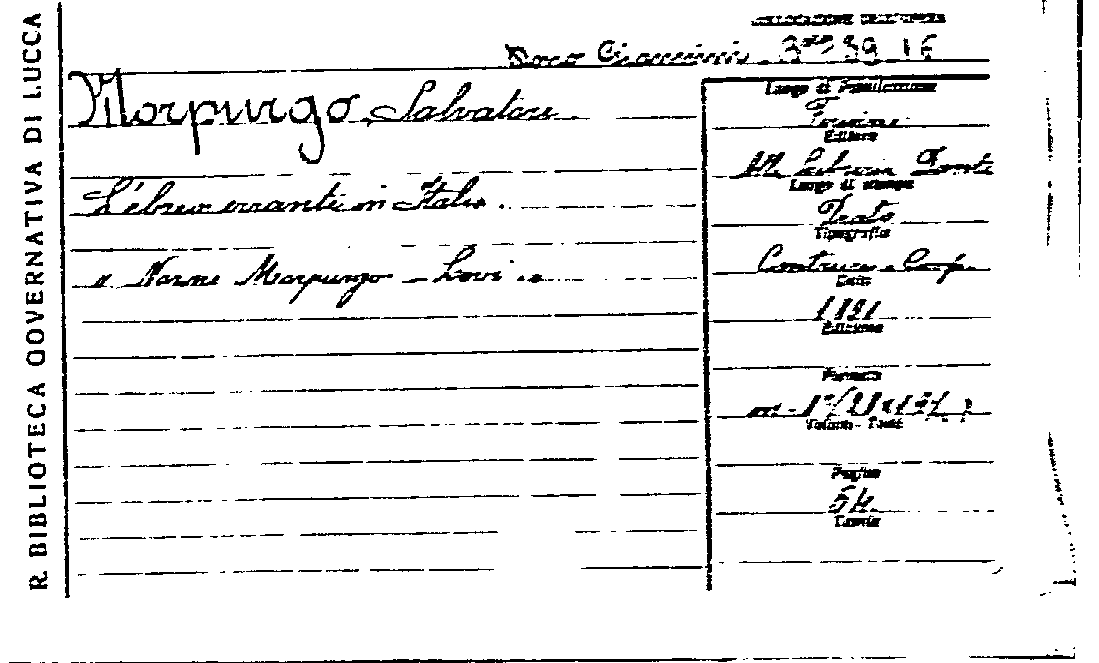 R. BIBLIOTECA GOVERNATIVA DI LUCCA
COLLOCAZIONE DELL'OPERA
Morpurgo Salvatore
L'ebreo errante in Italia.
« Norme Morpurgo - Levi . »
Luogo di Pubblicazione
Firenze
Editore
Libreria Dante
Luogo di stampa
Prato
Tipografia
Contrucci e Comp.
Data
1891
Edizione
Formato
Volumi - Tomi
Pagine
54.
Tavole